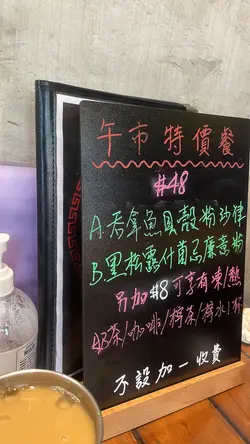 午市特價餐
#48
A.吞拿魚貝殼粉沙律
B.黑松露什菌忌廉意粉
另加#8可享有凍/熱
奶茶/咖啡/檸茶/檸水1杯
不設加一收費